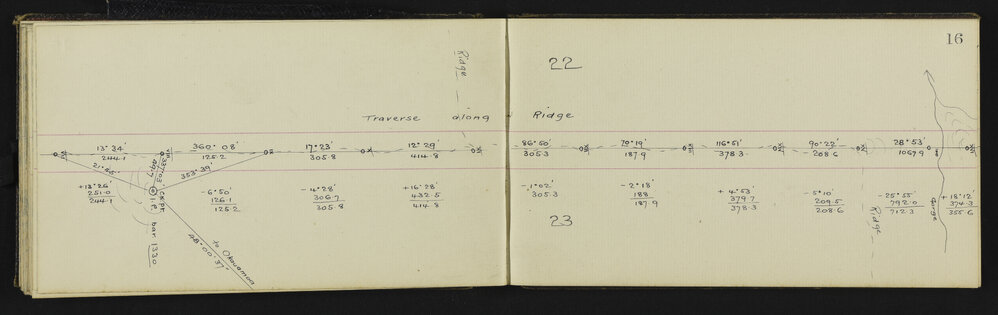 16
Ridge
22
Traverse along Ridge
13° 34'
244.1
360° 08'
125.2
17° 23'
305.8
12° 29'
414.8
86° 50'
305.3
70° 19'
187.9
116° 51'
378.3
90° 22'
208.6
28° 53'
1067.9
353° 39'
+13° 26'
251.0
244.1
-6° 50'
126.1
125.2
-4° 28'
306.7
305.8
+16° 28'
432.5
414.8
-1° 02'
305.3
-2° 18'
188
187.9
+4° 53'
379.7
378.3
-5° 10'
209.5
208.6
-25° 55'
792.0
712.3
+18° 12'
374.3
355.6
I.P.
bar 1330
to Okauamon
48° 00' 37"
23
Ridge
Gorge